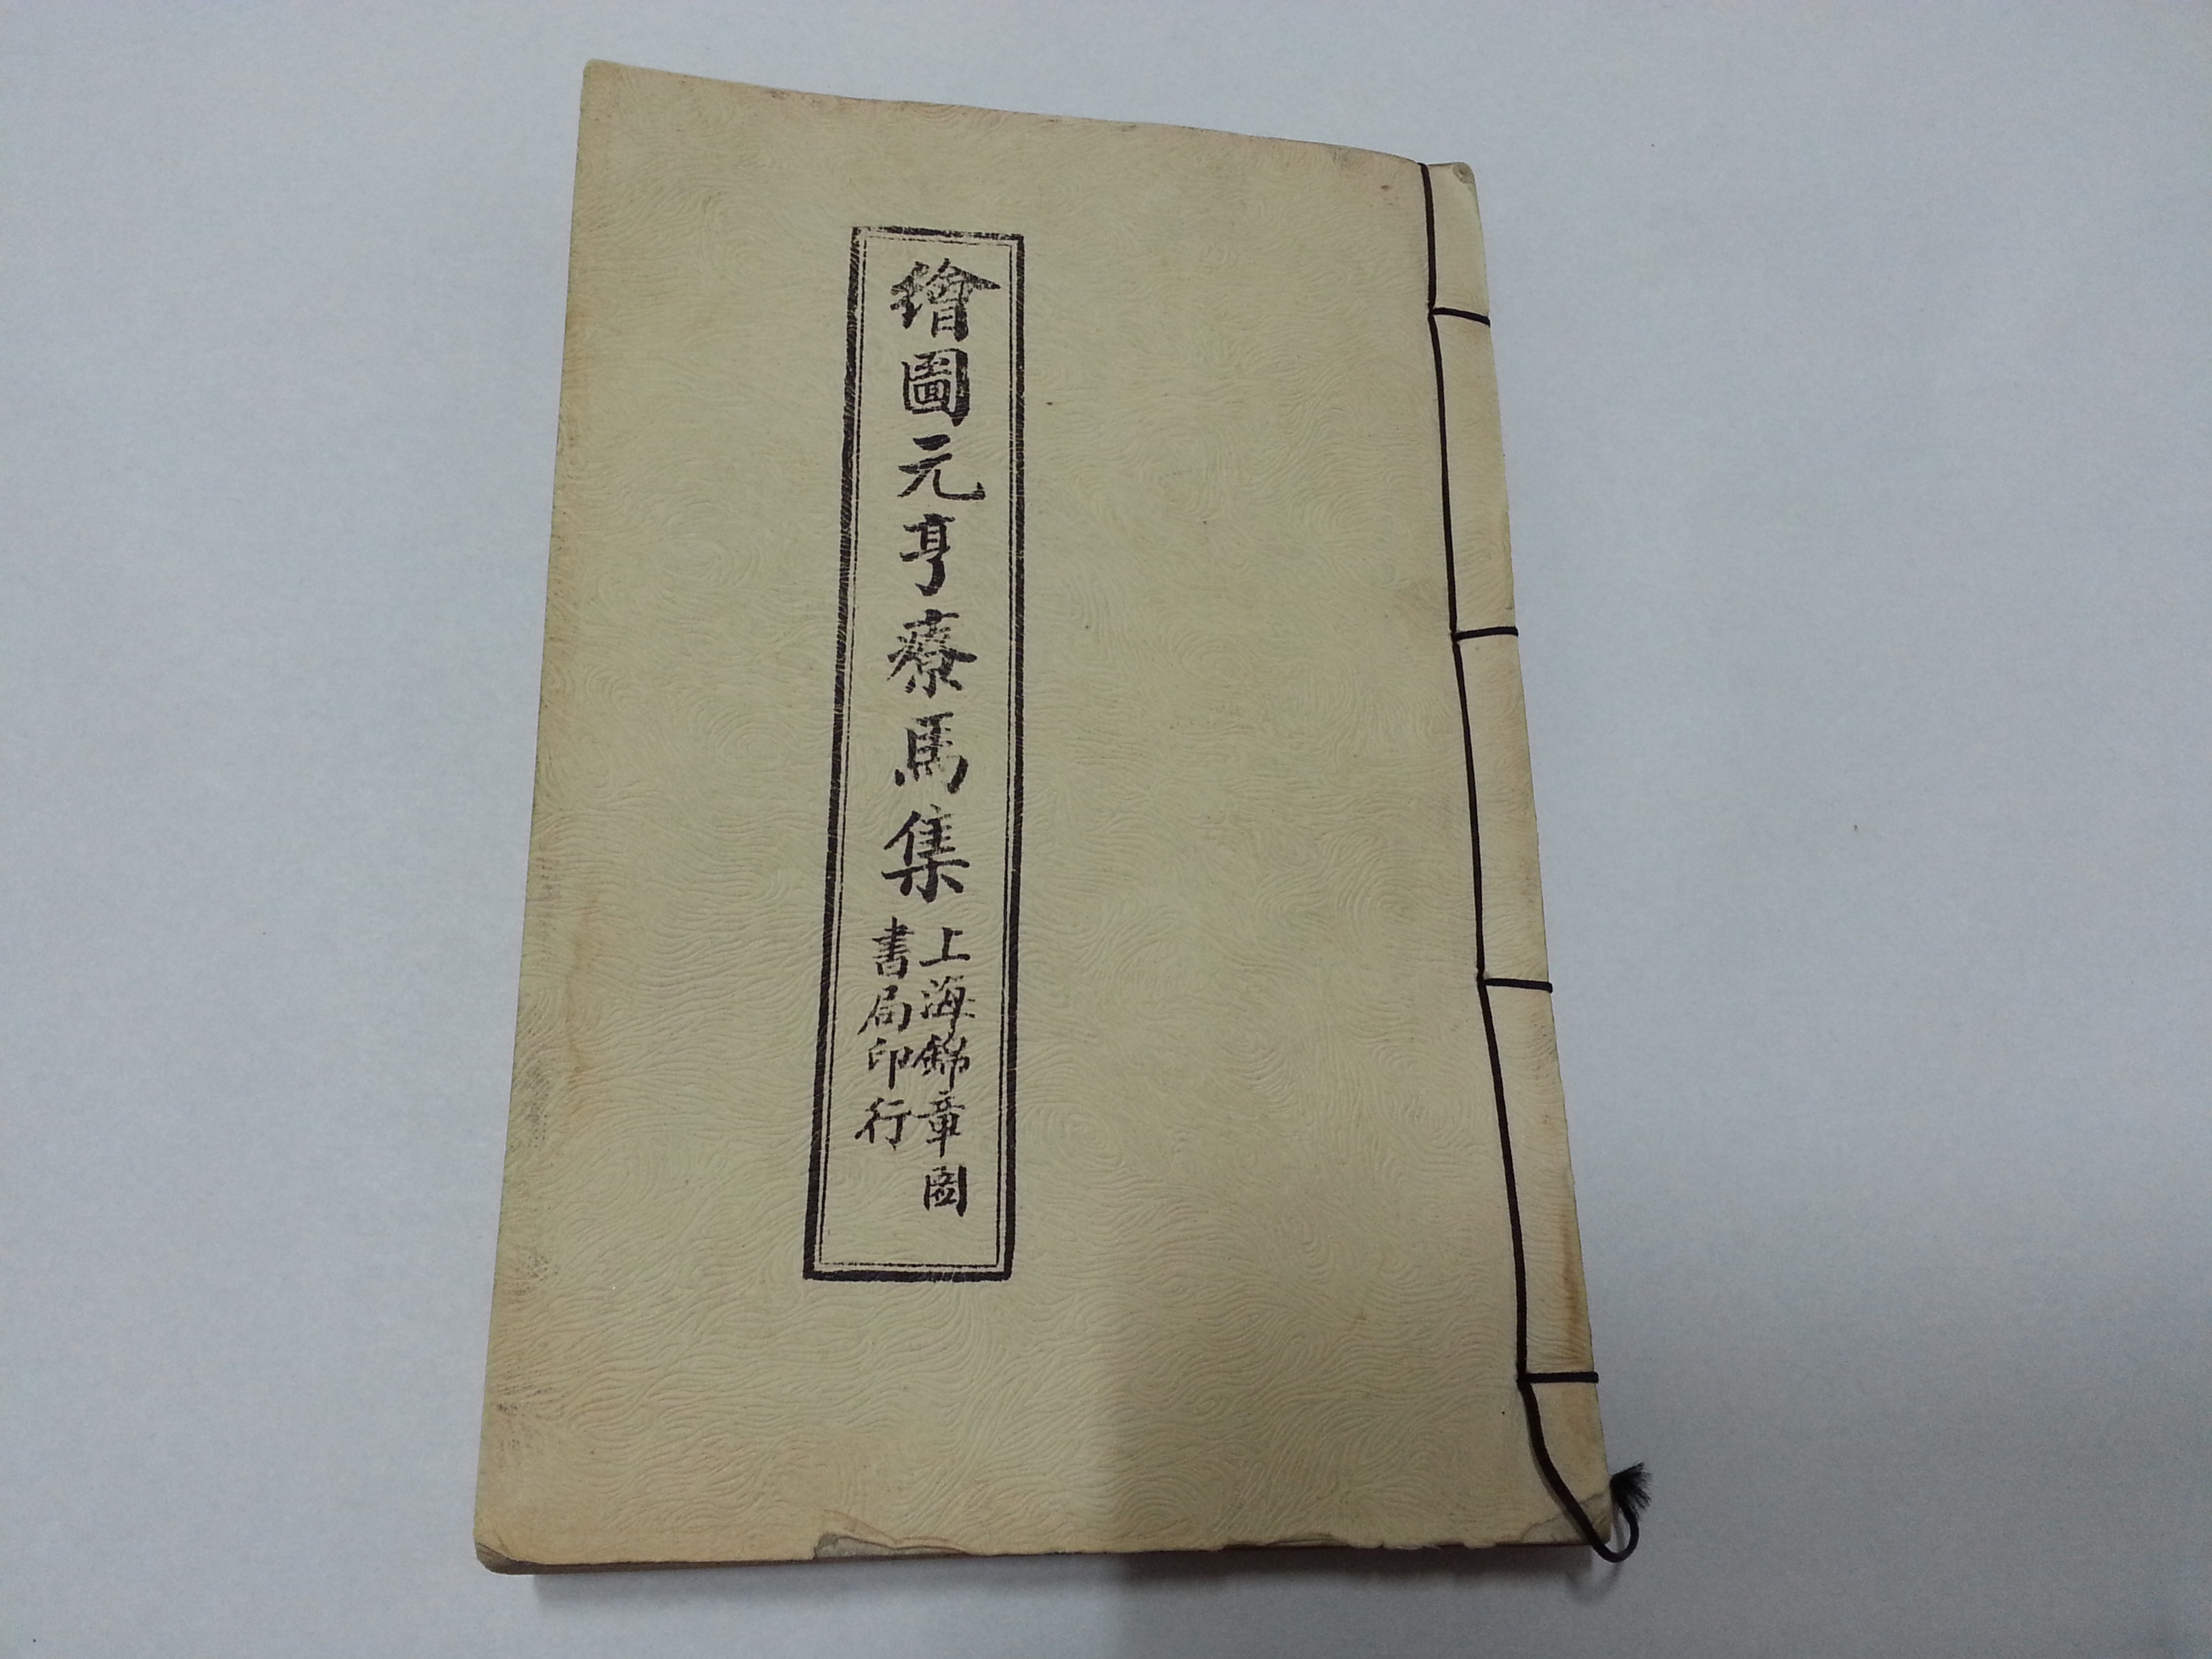 繪圖元亨療馬集
上海錦章圖
書局印行